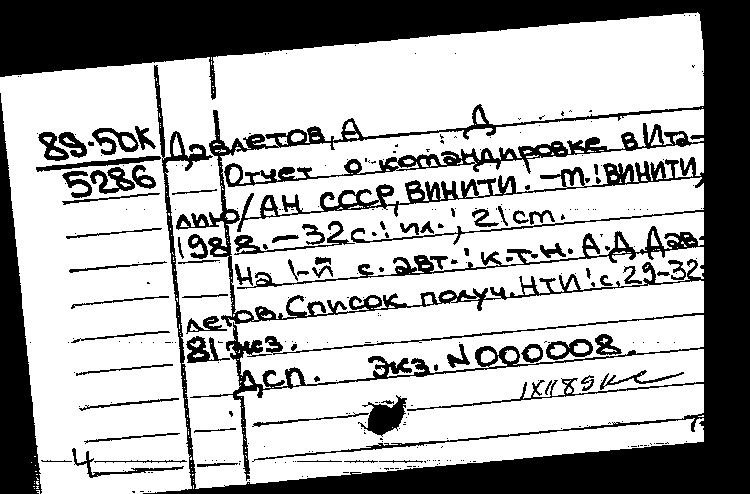 89-50К
5286
Давлетов, А Д
Отчет о командировке в Ита-
лию/АН СССР, ВИНИТИ. -М.: ВИНИТИ,
1988. -32 с.: ил.; 21 см.
На 1-й с. авт.: к.т.н. А.Д. Дав-
летов. Список получ. НТИ: с. 29-32
81 экз.
ДСП. Экз. N 000008.
4